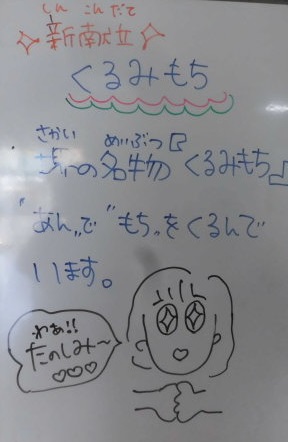 しん こんだて
新献立
くるみもち
さかい めいぶつ
堺の名物 くるみもち♪
"あん"で"もち"をくるんで
います。
わぁ!!
たのしみ〜
♡♡♡